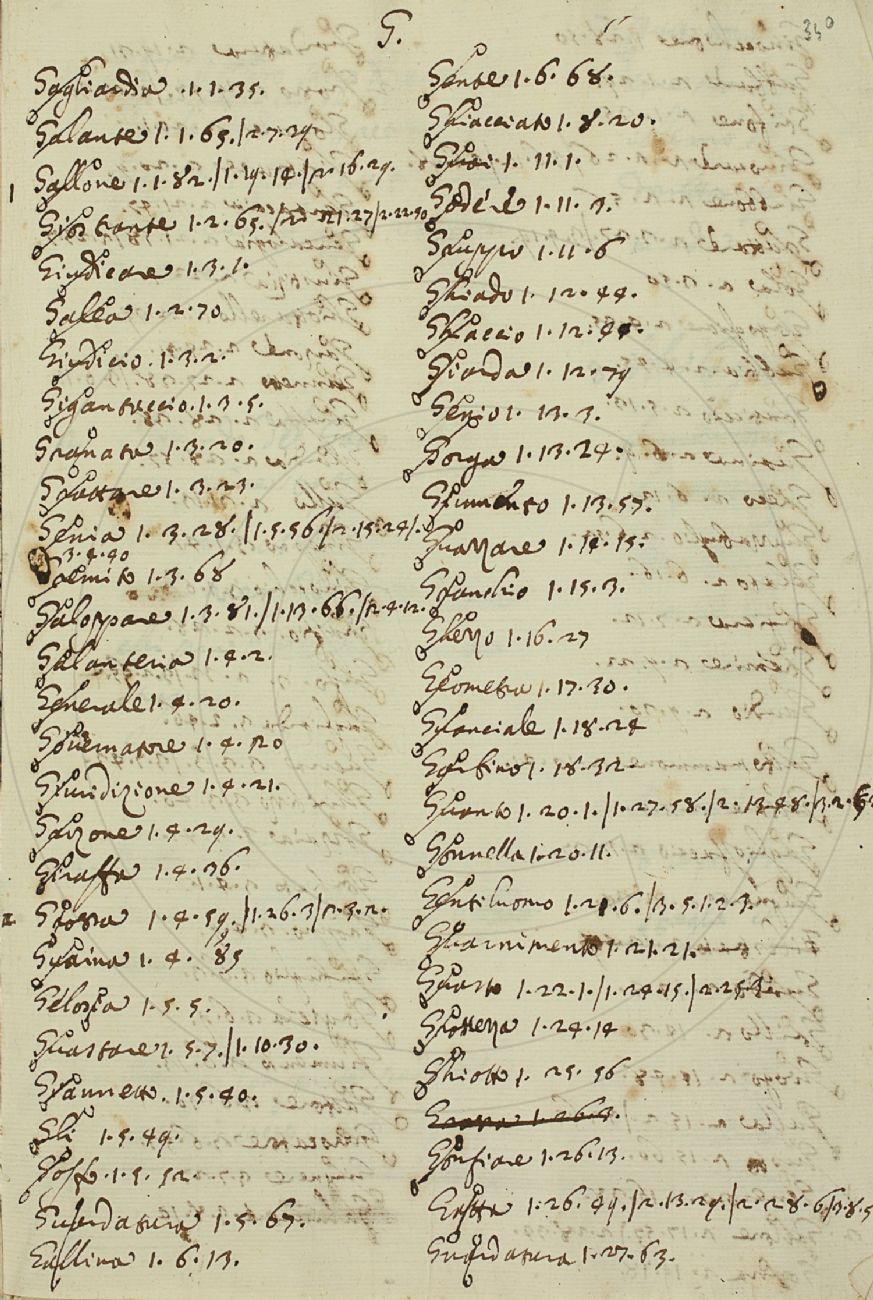 G.
350
Gagliardia. 1. 1. 35.
Galante 1. 1. 65./2. 7. 29.
1 Gallone 1. 1. 82./1. 19. 14./2. 16. 29.
Giostrante 1. 2. 65./ 21. 27/2. 22. 30
Giudicare 1. 3. 1.
Galea 1. 2. 70
Giudicio. 1. 3. 2.
Gigantaccio. 1. 3. 5.
Granata 1. 3. 20.
Guattare 1. 3. 23.
Genia 1. 3. 28./1. 5. 56./2. 15. 24/.
3. 4. 40
Gremito 1. 3. 68
Galoppare 1. 3. 81./1. 13. 66./2. 4. 12.
Galanteria 1. 4. 2.
Generale 1. 4. 20.
Governatore 1. 4. 20
Giuridizione 1. 4. 21.
Garzone 1. 4. 29.
Giraffa 1. 4. 36.
2 Grossa 1. 4. 59./1. 26. 3/2. 3. 2.
Guaina 1. 4. 85
Gelosia 1. 5. 5.
Guastare 1. 5. 7./1. 10. 30.
Giannetto. 1. 5. 40.
Gli 1. 5. 49.
Goffo. 1. 5. 52
Guardatura 1. 5. 67.
Gallina 1. 6. 13.
Gente 1. 6. 68.
Ghiacciato 1. 8. 20.
1. 11. 1.
Godere 1. 11. 3.
Gruppo 1. 11. 6
Ghiado 1. 12. 44.
Ghiaccio 1. 12. 44.
Giarda 1. 12. 79
Genio 1. 13. 3.
Gorga 1. 13. 24.
Giumento 1. 13. 57.
Guazzare 1. 14. 15.
Granchio 1. 15. 3.
Gherzo 1. 16. 27
Geometra 1. 17. 30.
Guanciale 1. 18. 24
1. 18. 32.
Guanto 1. 20. 1./1. 27. 58./2. 13. 48./3. 2.
Gonnella 1. 20. 11.
Gentiluomo 1. 21. 6./3. 5. 1. 2. 3.
Guarnimento 1. 21. 21.
Guasto 1. 22. 1./1. 24. 15./2. 25. 3.
Grossezza 1. 24. 14
Ghiotto 1. 25. 56
Grossa 1. 26. 3.
Gonfiare 1. 26. 13.
Grotta 1. 26. 49./2. 13. 29./2. 28. 6/3. 8. 5
Guardatura 1. 27. 63.